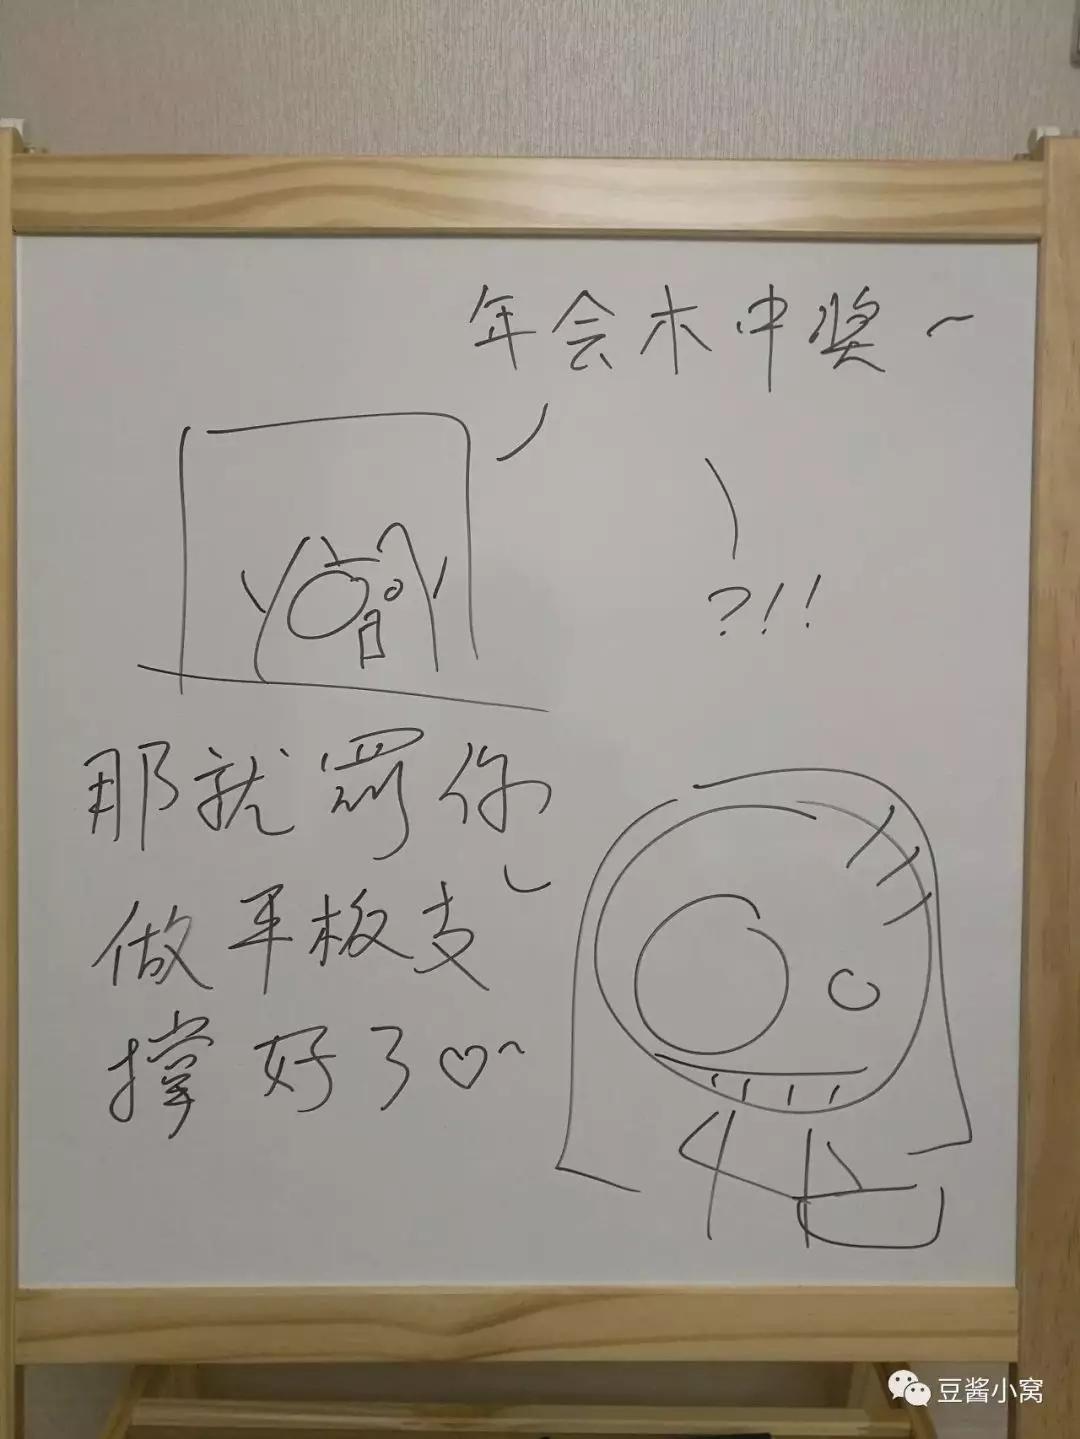 年会木中奖~
?!!
那就罚你
做平板支
撑好了♡~
豆酱小窝